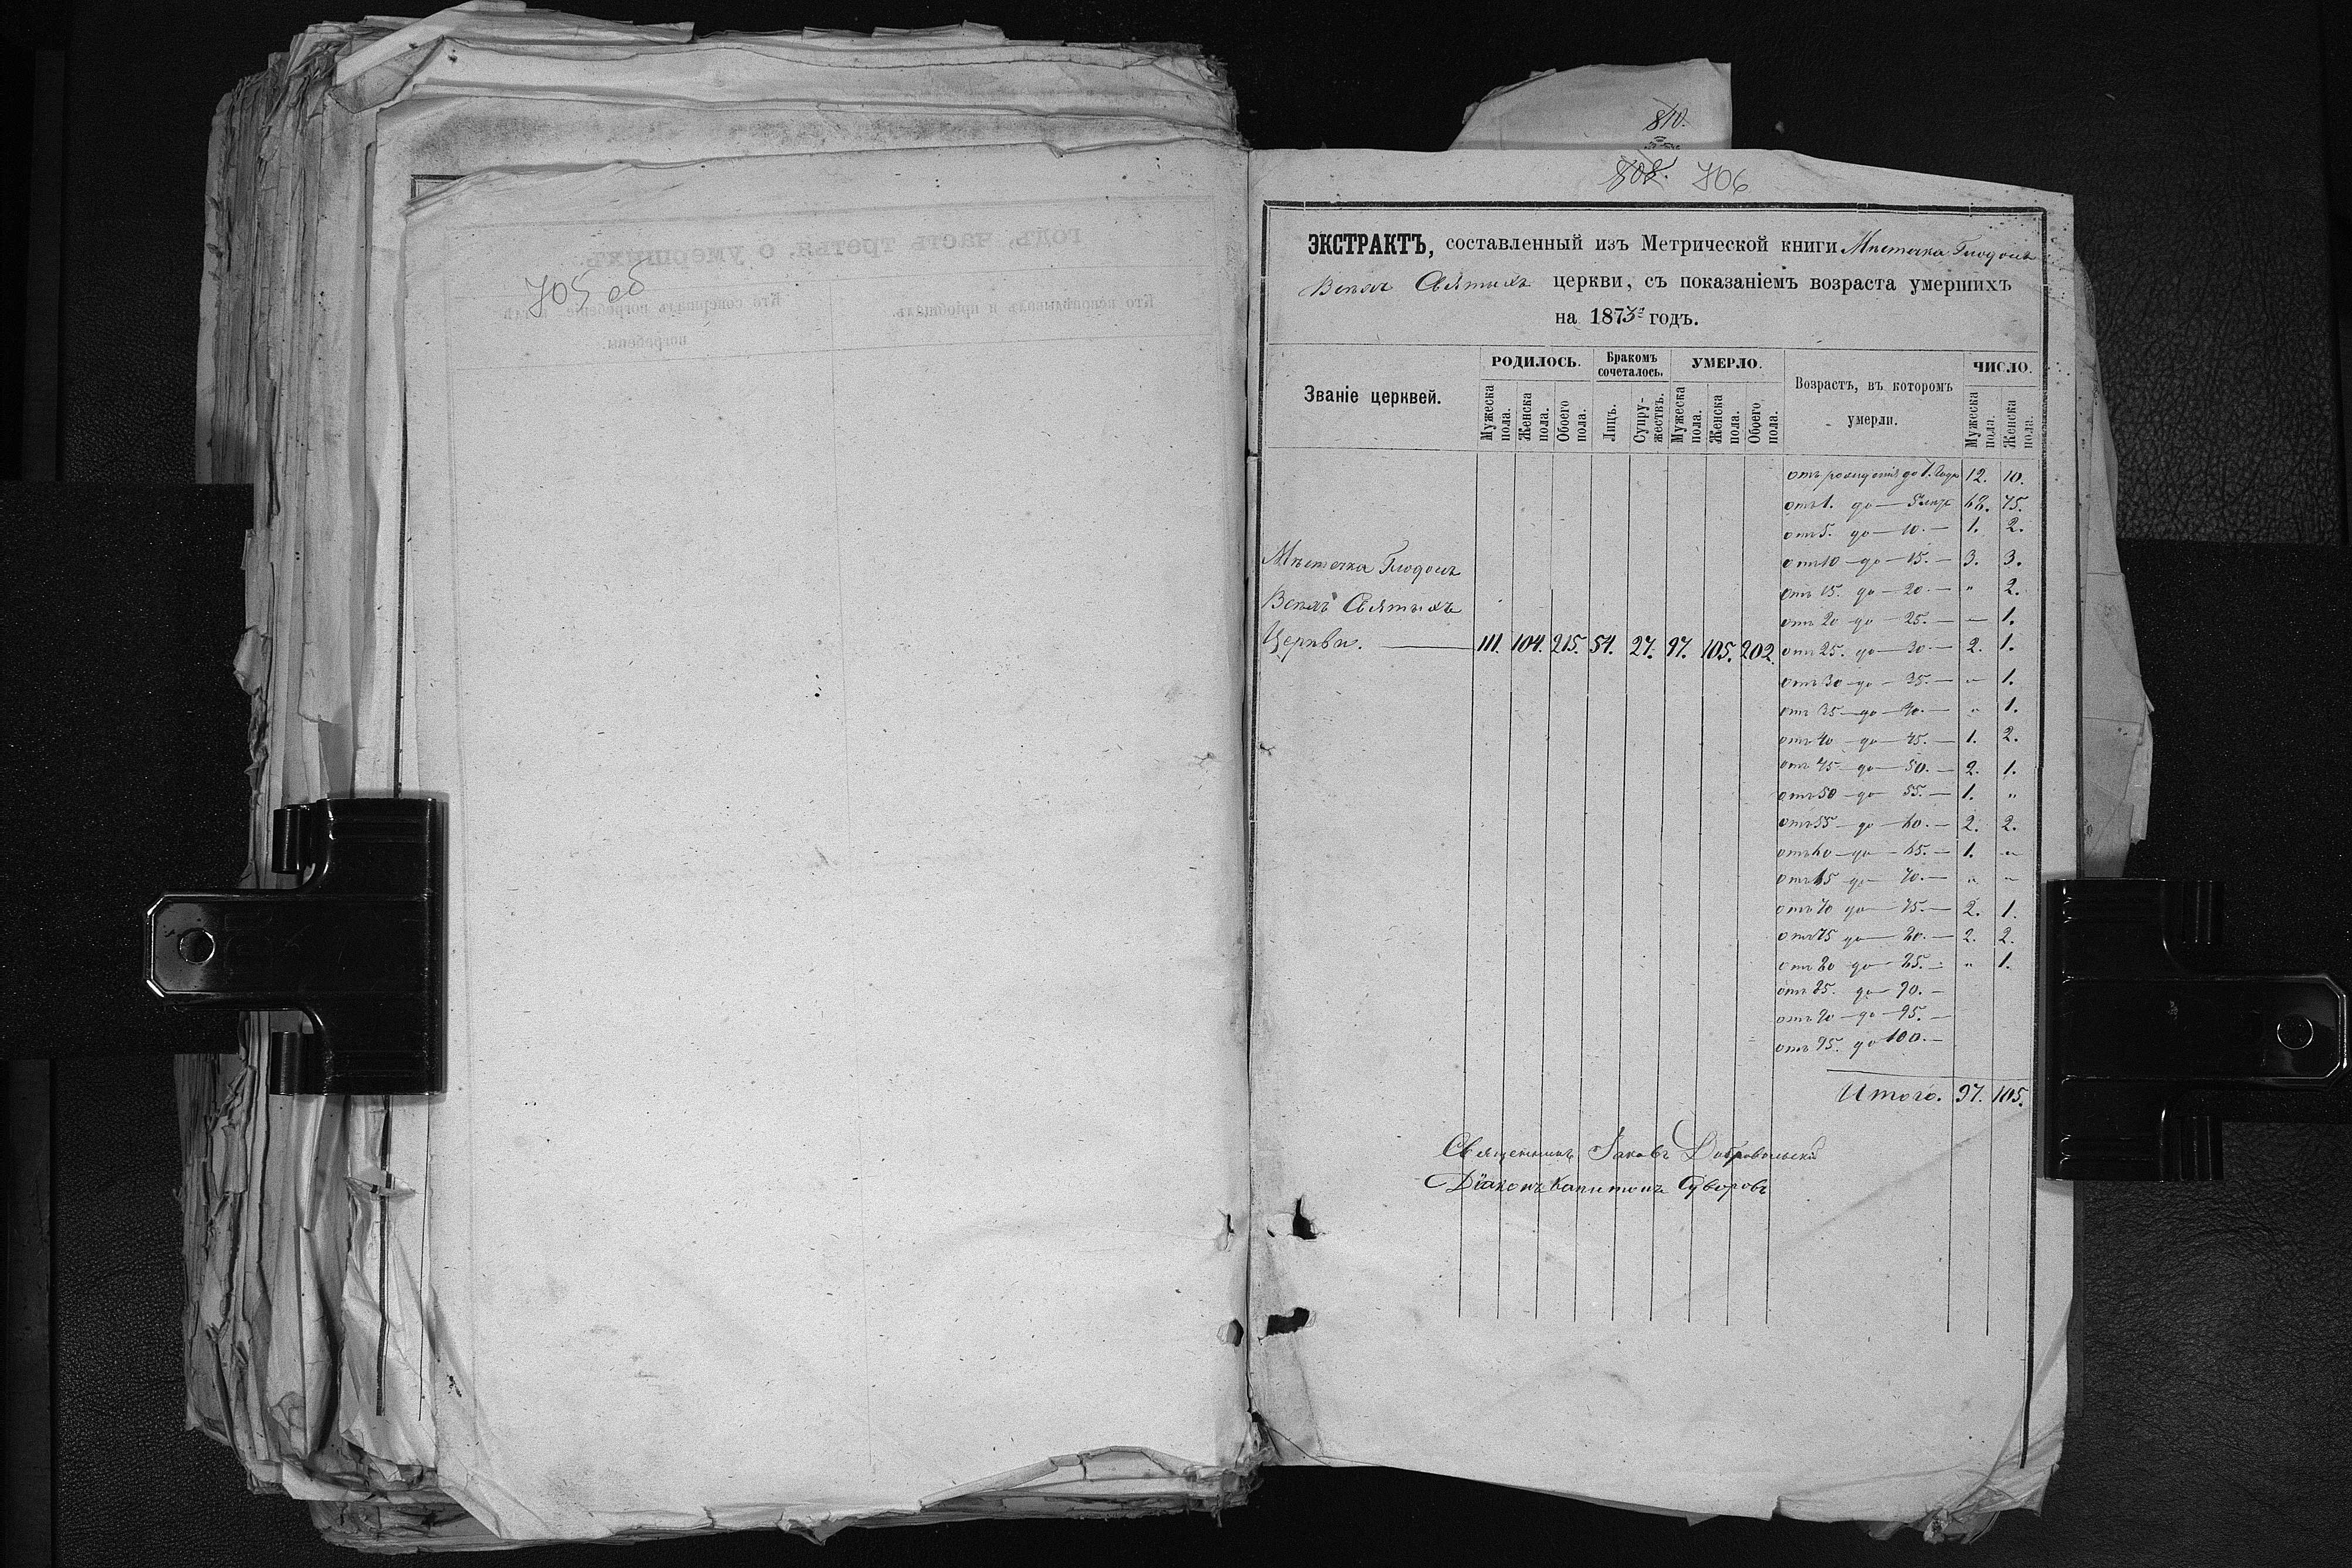 810.
808. 706
705 об
годъ, часть третья, о умершихъ.
Кто исповѣдывалъ и пріобщалъ.
Кто совершалъ погребеніе
погребены.
ЭКСТРАКТЪ, составленный изъ Метрической книги Мѣстечка Глодосъ
Всѣхъ Святыхъ церкви, съ показаніемъ возраста умершихъ
на 1873й годъ.
Званіе церквей.
РОДИЛОСЬ. Бракомъ сочеталось. УМЕРЛО.
Возрастъ, въ которомъ умерли.
ЧИСЛО.
Мужеска пола. Женска пола. Обоего пола. Лицъ. Супружествъ. Мужеска пола. Женска пола. Обоего пола. Мужеска пола. Женска пола.
отъ рожденія до 1. Года 12. 10.
отъ 1. до — 5 лѣтъ 68. 75.
отъ 5. до — 10. — 1. 2.
отъ 10 — до — 15. — 3. 3.
отъ 15. до — 20. — „ 2.
отъ 20 до — 25. — — 1.
Мѣстечка Глодосъ
Всѣхъ Святыхъ
Церкви. — 111. 104. 215. 54. 27. 97. 105. 202. отъ 25. до — 30. — 2. 1.
отъ 30 — до — 35. — „ 1.
отъ 35 — до — 40. — „ 1.
отъ 40 — до — 45. — 1. 2.
отъ 45 — до — 50. — 2. 1.
отъ 50 — до 55. — 1. „
отъ 55 — до — 60. — 2. 2.
отъ 60 — до — 65. — 1. „
отъ 65 до — 70. — „ „
отъ 70 до — 75. — 2. 1.
отъ 75 до — 80. — 2. 2.
отъ 80 до — 85. — „ 1.
отъ 85. до — 90. —
отъ 90 — до — 95. —
отъ 95. до 100. —
Итого. 97. 105.
Священникъ Іаковъ Добровольскій
Діаконъ Капитонъ Суворовъ